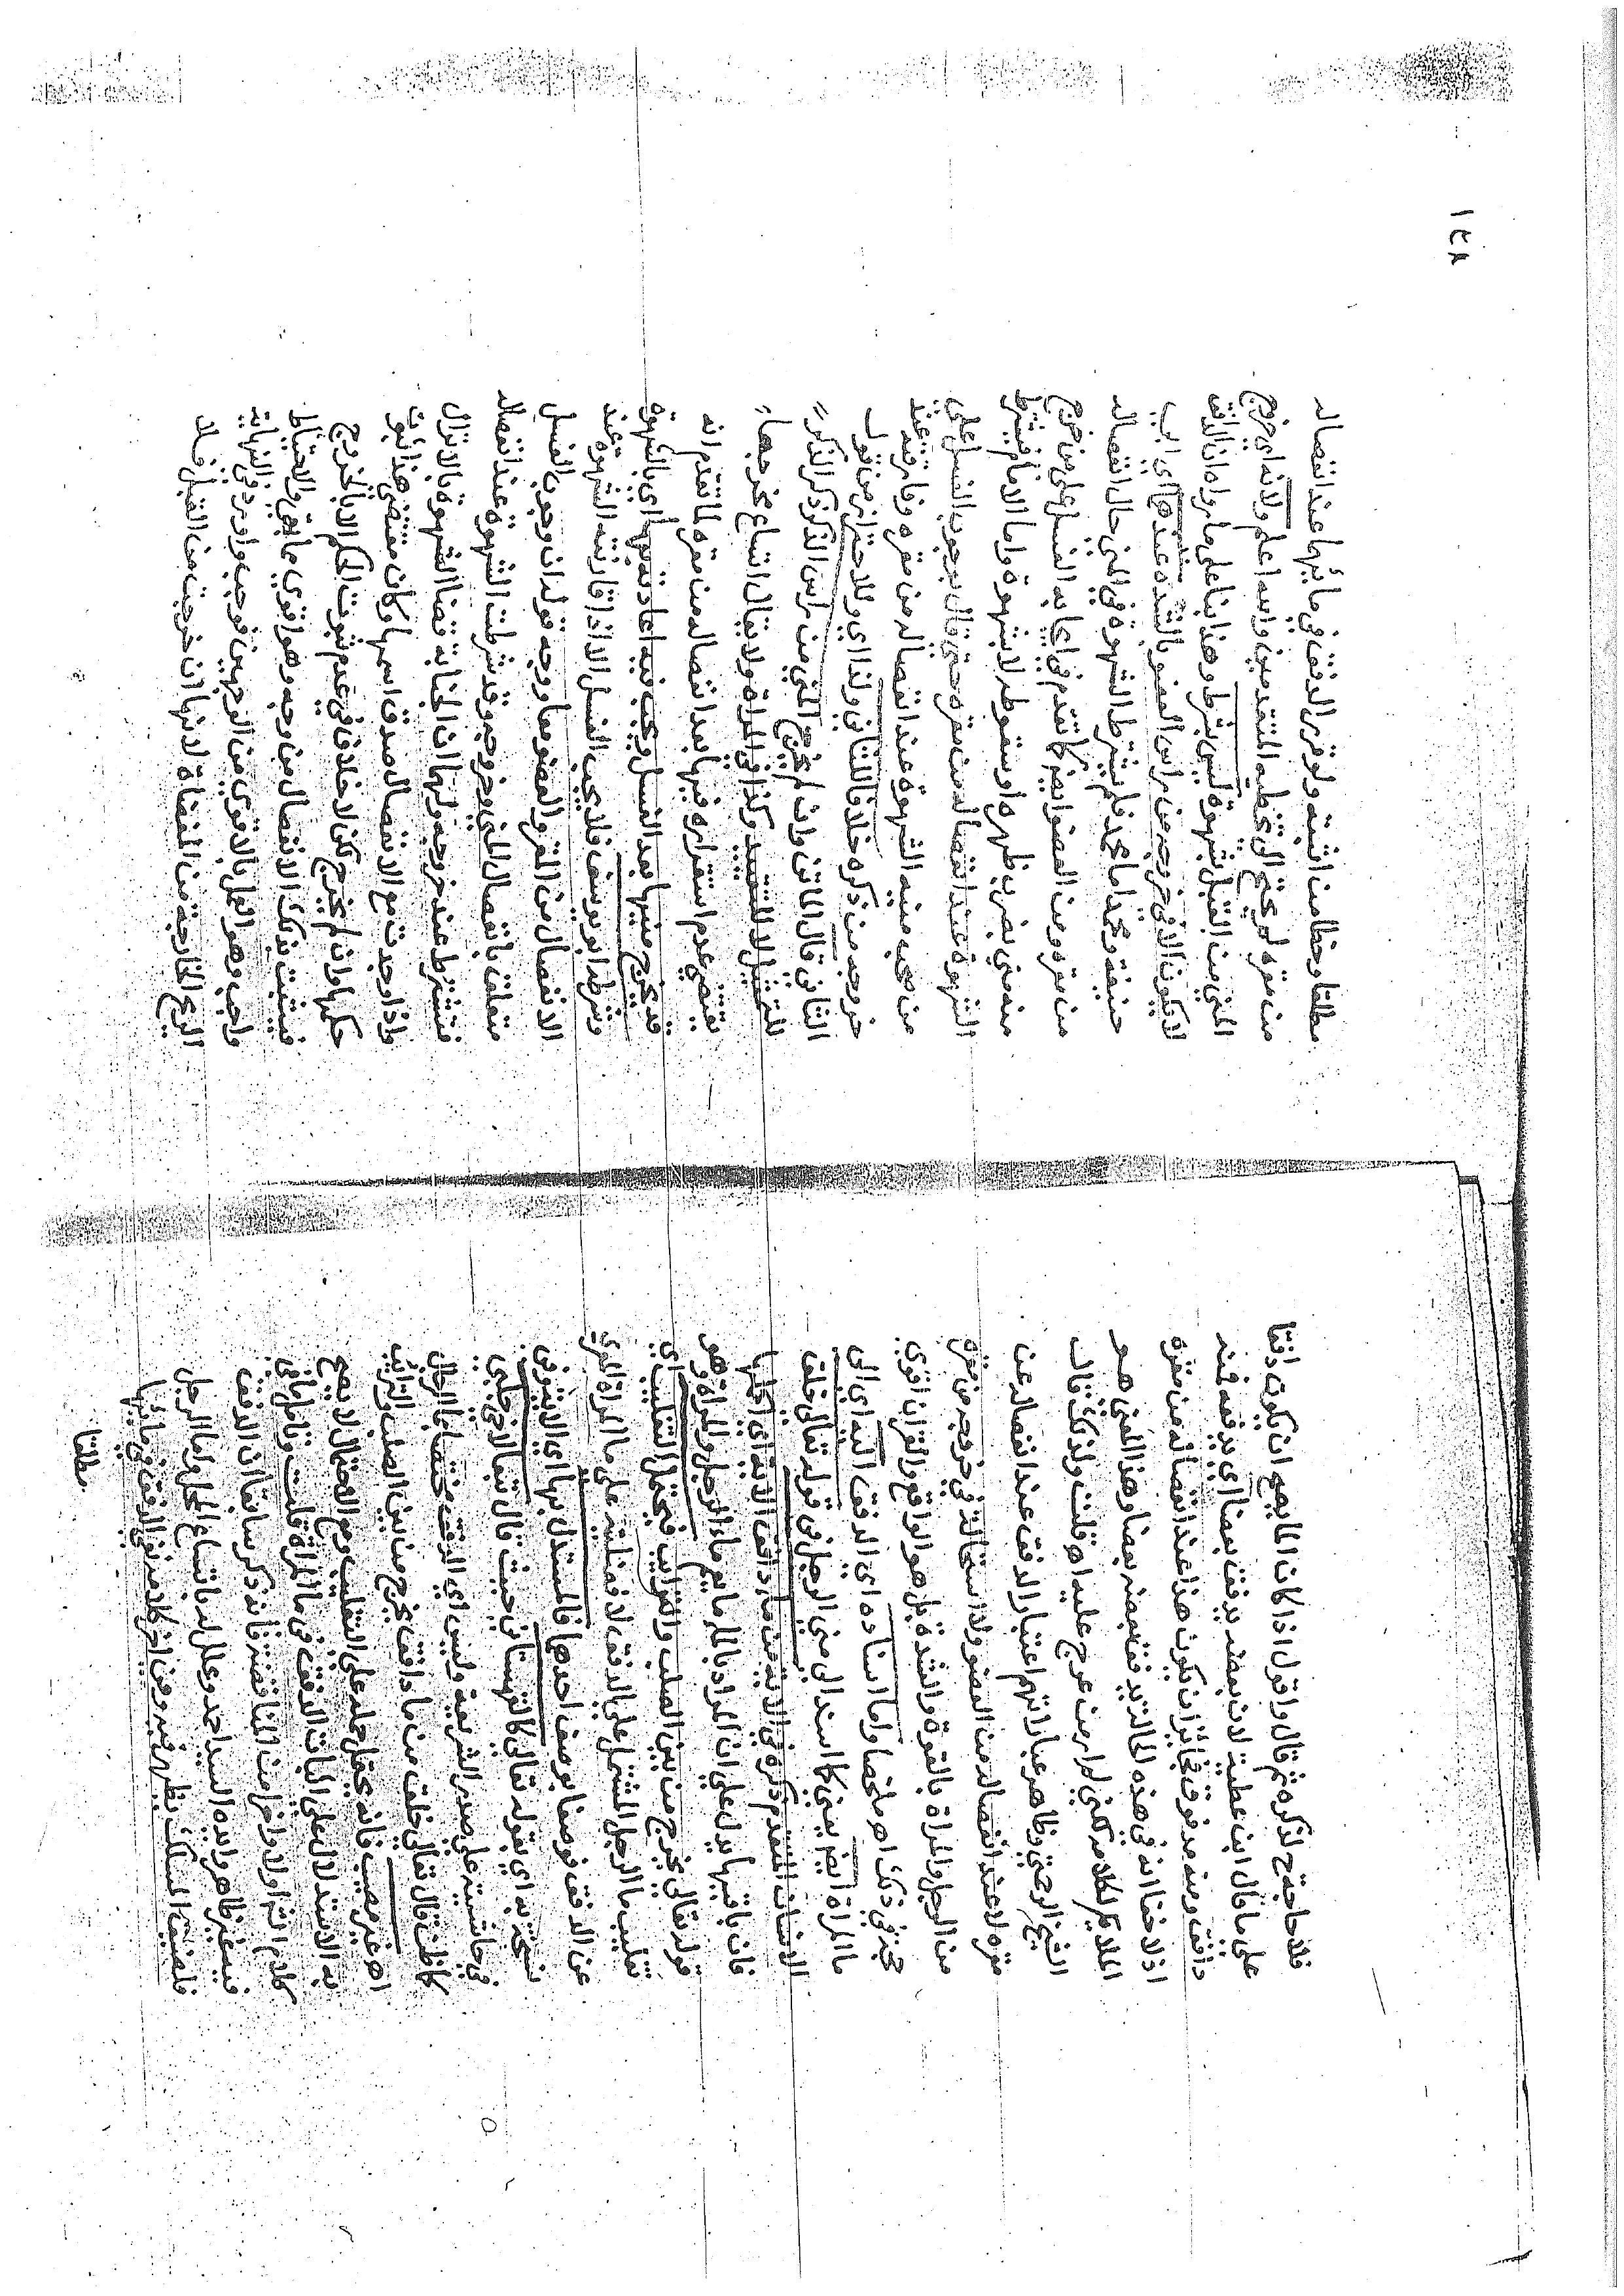 فلا حاجة ح لذكره ثم قال واقول اذا كان الماء يصح ان يكون دافقا
على ما قال ابن عطية لان بعضه يدفق بعضا اي يدفعه فمنه
دافق ومنه مدفوق فجائز ان يكون هذا عند انفصاله من مقره
اذ لا خفا انه في هذه الحالة يدفق بعضه بعضا وهذا المعنى هو
الملايم لكلامهم لكني لم ار من عرج عليه اه قلت ولذلك قال
الشيخ الرحمتي وظاهر عباراتهم اعتبار الدفق عند انفصاله عن
مقره لا عند انفصاله من العضو ولذا استحالة في خروجه من مقره
من الرجل والمراة بالقوة والشدة بل هو الواقع والقران اقوى
حجة في ذلك اه ملخصا واما اسناده اي الدفق اليه اي الى
ماء المراة ايضا يعني كما اسند الى مني الرجل في قوله تعالى خلق
الانسان المتقدم ذكره في الاية من ماء دافق الاية اي اقراها
فان باقيها يدل على ان المراد بالماء ما يعم ماء الرجل والمراة وهو
قوله تعالى يخرج من بين الصلب والترايب فيحتمل التغليب اي
تغليب ماء الرجل المشتمل على الدفق لافضليته على ماء المراة العري
عن الدفق فوصفا بوصف احدهما فالمستدل بها اي الاية وفي
نسخة به اي بقوله تعالى كالقهستاني حيث قال تبعا لاخي چلبي
في حاشيته على صدر الشريعة وليس اي الدفق مختصا بماء الرجال
كما ظن قال تعالى خلق من ماء دافق يخرج من بين الصلب والترائب
اه غير مصيب فانه يحتمل حمله على التغليب ومع الاحتمال لا يصح
به الاستدلال على اثبات الدفق في ماء المراة قلت وتامل ما في
كلام الشارح اولا واخرا من المناقضة فانه ذكر سابقا ان الدفق
فيه غير ظاهر وايده السيد احمد وعلل له باتساع المحل واما الرجل
فلضيق المسلك يظهر فيه ومن اخر كلامه نفي الدفق في مائها
مطلقا
مطلقا وخطا من اثبته ولو قرر الدفق في مائها عند انفصاله
من مقره لم يحتج الى تخطية المتقدمين والله اعلم ولانه اي خروج
المني من القبل بشهوة ليس بشرط وهذا بنا على ما رواه ان الدفق
لا يكون الا في خروجه من راس العضو بالشدة عندهما اي ابي
حنيفة ومحمد اما محمد فلم يشترط الشهوة في المني حال انفصاله
من مقره ومن العضو ايضا كما تقدم في ايجابه الغسل على من خرج
منه مني بضرب ظهره او سقوط لا بشهوة واما الامام فيشترط
الشهوة عند انفصاله من مقره حتى قال بوجوب الغسل على
من صحب منيه الشهوة عند انفصاله من مقره وفارقته عند
خروجه من ذكره خلافا للثاني ولذا اي وللاحتراز من قول
الثاني قال الماتن وان لم يخرج المني من راس الذكر ذكر الذكر
للتمثيل لا للتقييد وكذا في المراة ولا يقال اتساع مخرجها
يقتضي عدم استقراره فيها بعد انفصاله من مقره لما تقدم انه
قد يخرج منيها بعد الغسل ويجب فيه اعادته بها اي بالشهوة
وشرطه ابو يوسف فلا يجب الغسل الا اذا قارنته الشهوة عند
الانفصال من المقر والعضو معا ووجه قوله ان وجوب الغسل
متعلق بانفصال المني وخروجه وقد شرطت الشهوة عند انفصاله
فتشترط عند خروجه ولهما ان الجنابة قضاء الشهوة بالانزال
واذا وجدت مع الانفصال صدق اسمها وكان مقتضى هذا ثبوت
حكمها وان لم يخرج لكن لا خلاف في عدم ثبوت الحكم الا بالخروج
فيثبت بذلك الانفصال من وجه وهو اقوى ما بقي والاحتياط
واجب وهو العمل بالاقوى من الوجهين فوجب واورد في النهاية
الريح الخارجة من المفضاة لانها ان خرجت من القبل فلا